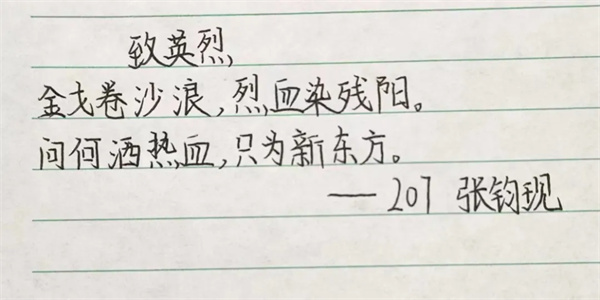 致英烈
金戈卷沙浪,烈血染残阳。
问何洒热血,只为新东方。
——207 张钧现